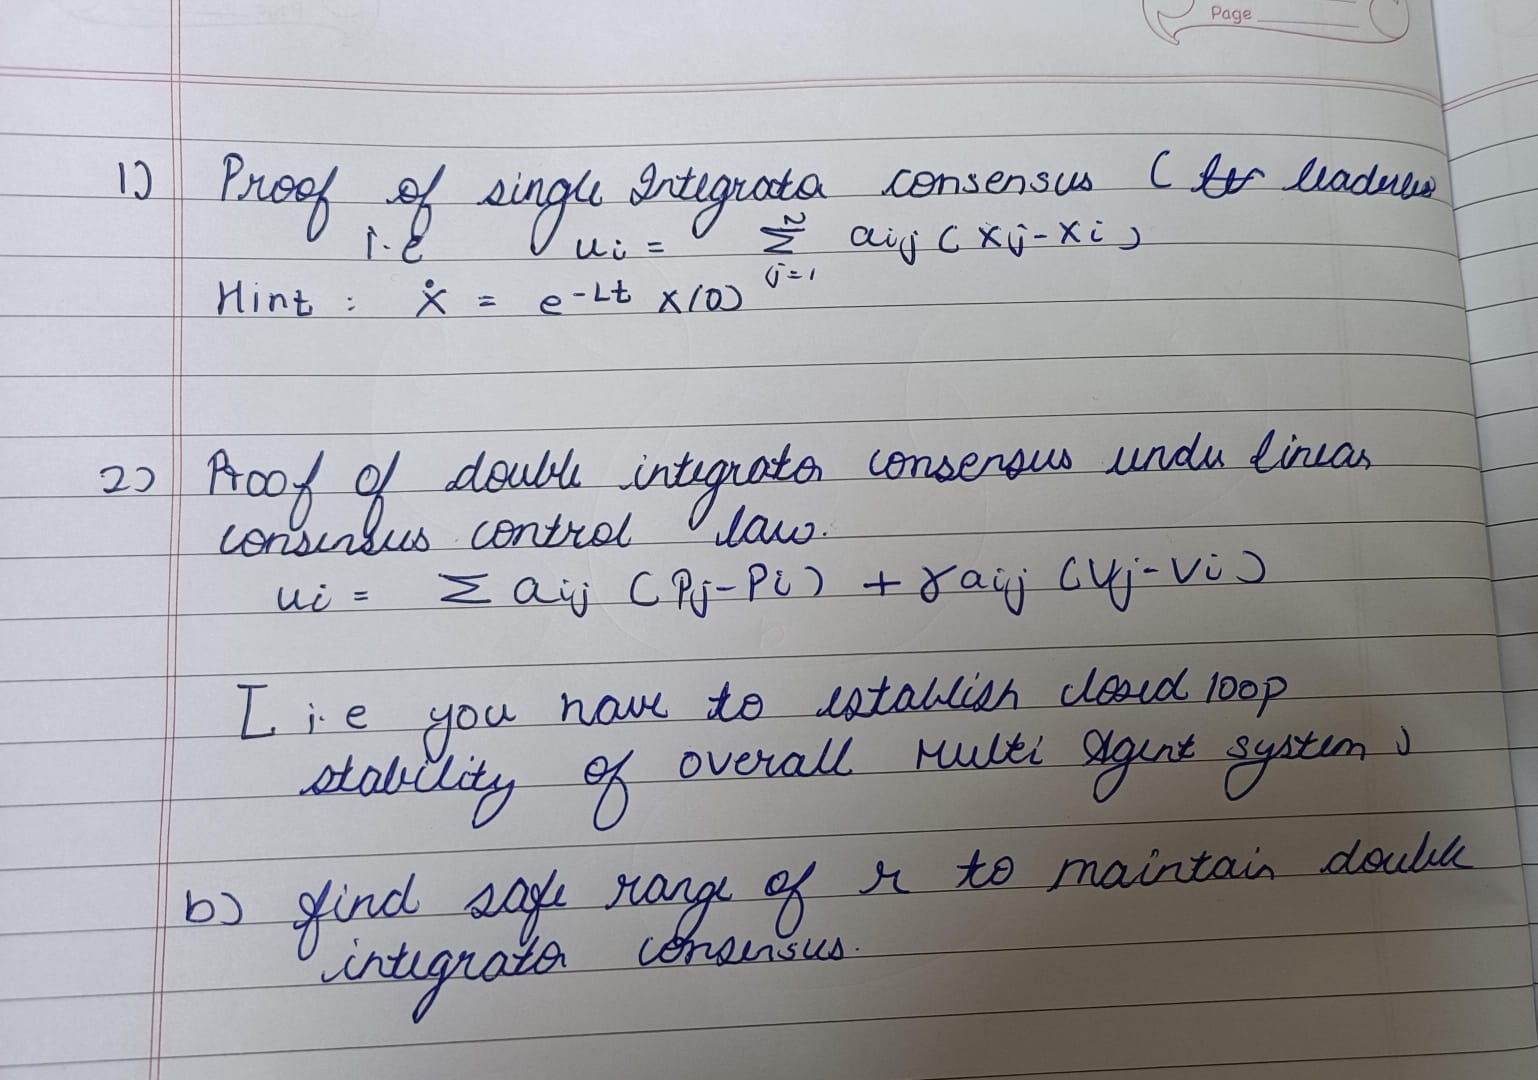 Page
1) Proof of single Integrator consensus ( leaderless
i.e ui = N Σ j=1 aij ( xj - xi )
Hint : ẋ = e-Lt x(0)
2) Proof of double integrator consensus under linear
consensus control law.
ui = Σ aij ( Pj - Pi ) + γ aij ( Vj - Vi )
[ i.e you have to establish closed loop
stability of overall Multi Agent system )
b) find safe range of r to maintain double
integrator consensus.